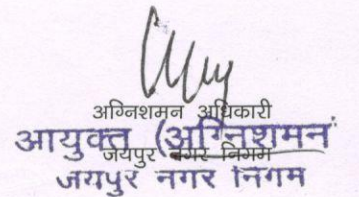 अग्निशमन अधिकारी
आयुक्त (अग्निशमन
जयपुर नगर निगम
जयपुर नगर निगम